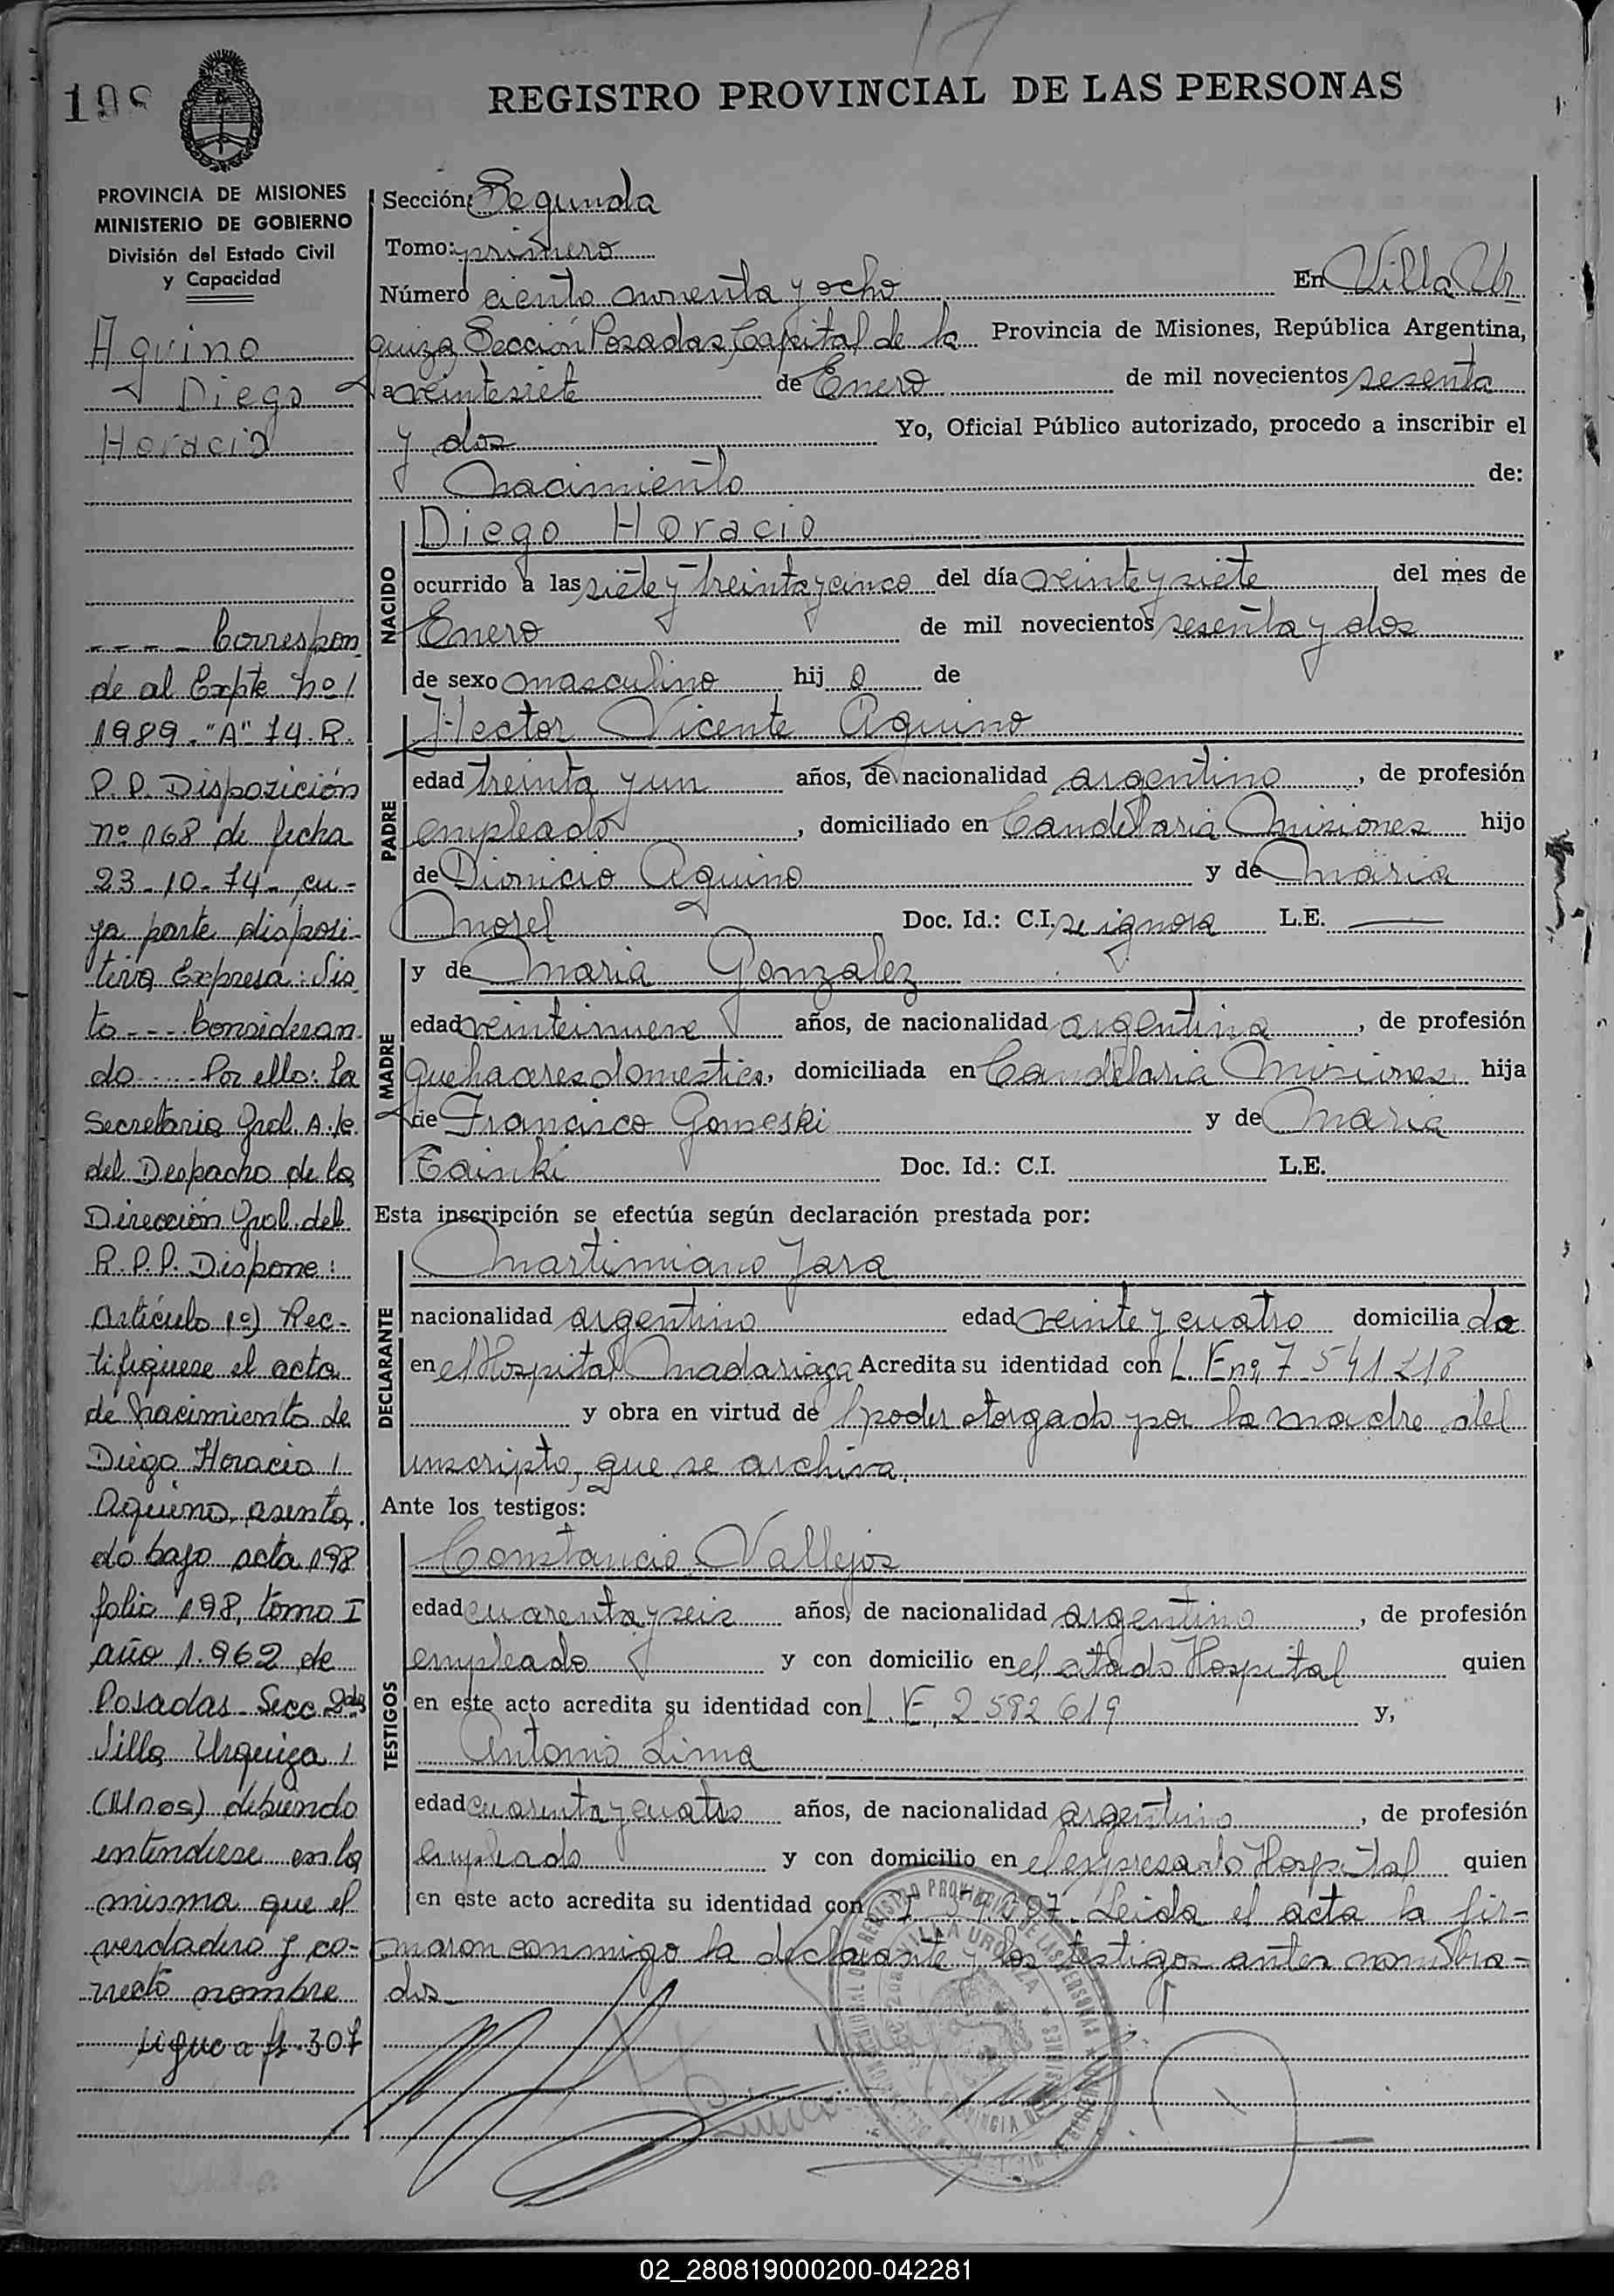 17
198
REGISTRO PROVINCIAL DE LAS PERSONAS
PROVINCIA DE MISIONES
MINISTERIO DE GOBIERNO
División del Estado Civil
y Capacidad
Aquino
Diego
Horacio
- - - - Correspon
de al Expte no/
1989-"A" 74 R.
P.P. Disposición
nº 168 de fecha
23-10-74- cu-
ya parte disposi-
tiva Expresa: Vis
to --- Consideran
do ---- Por ello: La
Secretaria Gral. A./c.
del Despacho de la
Dirección Gral. del
R.P.P. Dispone:
Artículo 1º) Rec-
tifíquese el acta
de nacimiento de
Diego Horacio /
Aquino, asenta
do bajo acta 198
folio 198, tomo I
año 1.962 de
Posadas-Secc 2da
Villa Urquiza /
(Mnes) debiendo
entenderse en la
misma que el
verdadero y co-
rrecto nombre
sigue a f. 307
Sección: Segunda
Tomo: primero
Número ciento noventa y ocho En Villa Ur
quiza Sección Posadas, Capital de la Provincia de Misiones, República Argentina,
a veintesiete de Enero de mil novecientos sesenta
y dos Yo, Oficial Público autorizado, procedo a inscribir el
nacimiento de:
NACIDO
Diego Horacio
ocurrido a las siete y treinta y cinco del día veinte y siete del mes de
Enero de mil novecientos sesenta y dos
de sexo masculino hij o de
PADRE
Hector Vicente Aquino
edad treinta y un años, de nacionalidad argentino, de profesión
empleado, domiciliado en Candelaria Misiones hijo
de Dionicio Aquino y de Maria
Morel Doc. Id.: C.I. se ignora L.E. ——
MADRE
y de Maria Gonzalez
edad veintinueve años, de nacionalidad argentina, de profesión
quehaceres domestico, domiciliada en Candelaria Misiones hija
de Francisco Gomeski y de Maria
Doc. Id.: C.I. L.E.
Esta inscripción se efectúa según declaración prestada por:
DECLARANTE
Martimiano Jara
nacionalidad argentino edad veinte y cuatro domicilia do
en el Hospital Madariaga Acredita su identidad con L. E nº, 7 541 218
y obra en virtud de poder otorgado por la madre del
inscripto, que se archiva.
Ante los testigos:
TESTIGOS
Constancio Vallejos
edad cuarenta y seis años, de nacionalidad argentino, de profesión
empleado y con domicilio en el citado Hospital quien
en este acto acredita su identidad con L. E, 2 582 619 y,
Antonio Lima
edad cuarenta y cuatro años, de nacionalidad argentino, de profesión
empleado y con domicilio en el expresado Hospital quien
en este acto acredita su identidad con Leida el acta la fir-
maron conmigo la declarante y los testigos antes nombra-
dos-
02_280819000200-042281